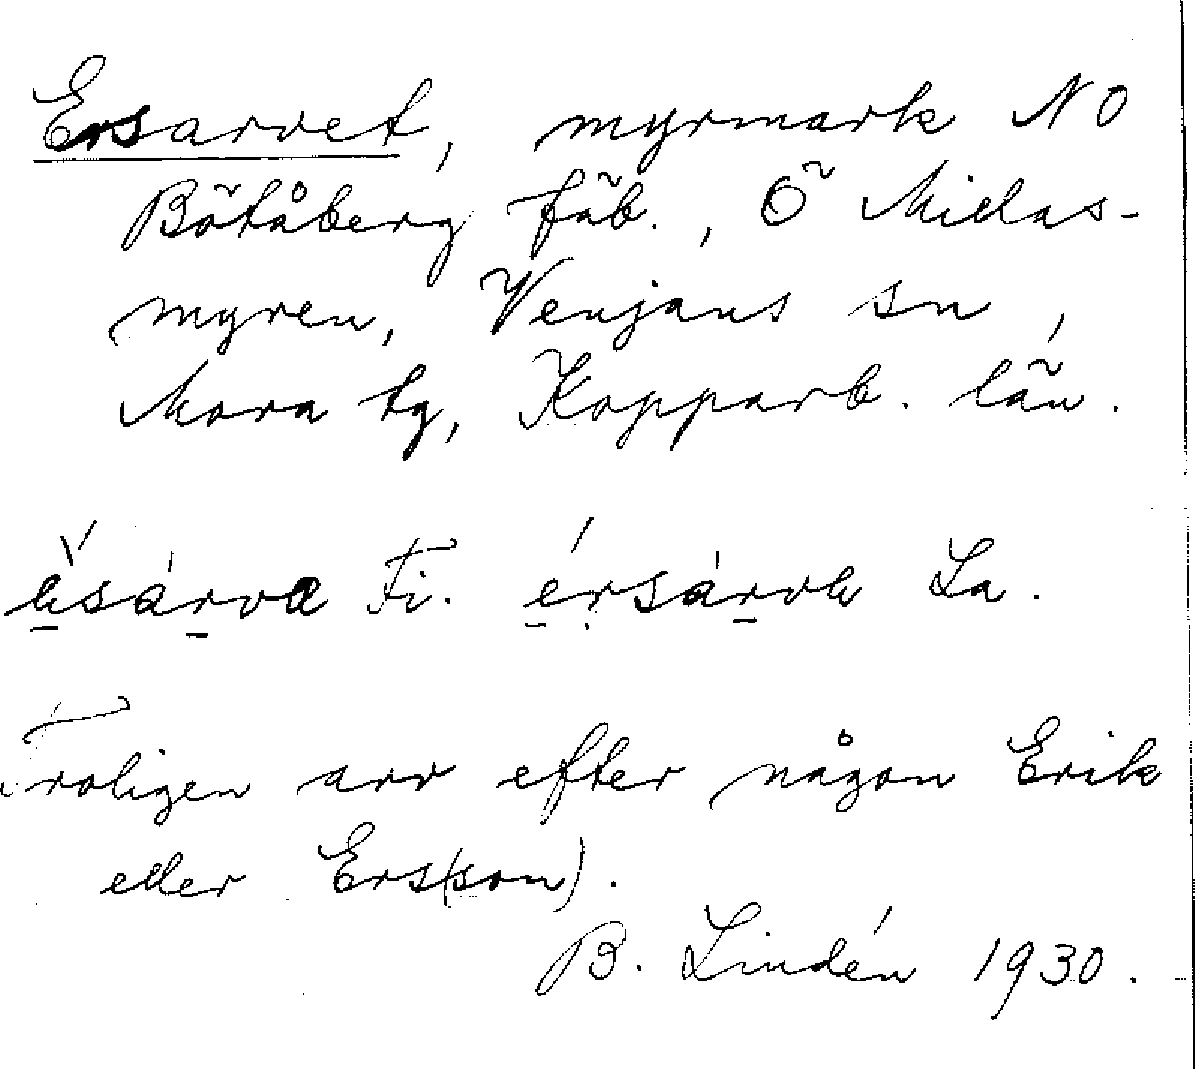 Ersarvet, myrmark NO
Bötåberg fäb., Ö Midas-
myren, Venjans sn,
Mora tg, Kopparb. län.
Fi. érsárva La.
Troligen arv efter någon Erik
eller Ers(son).
B. Lindén 1930.